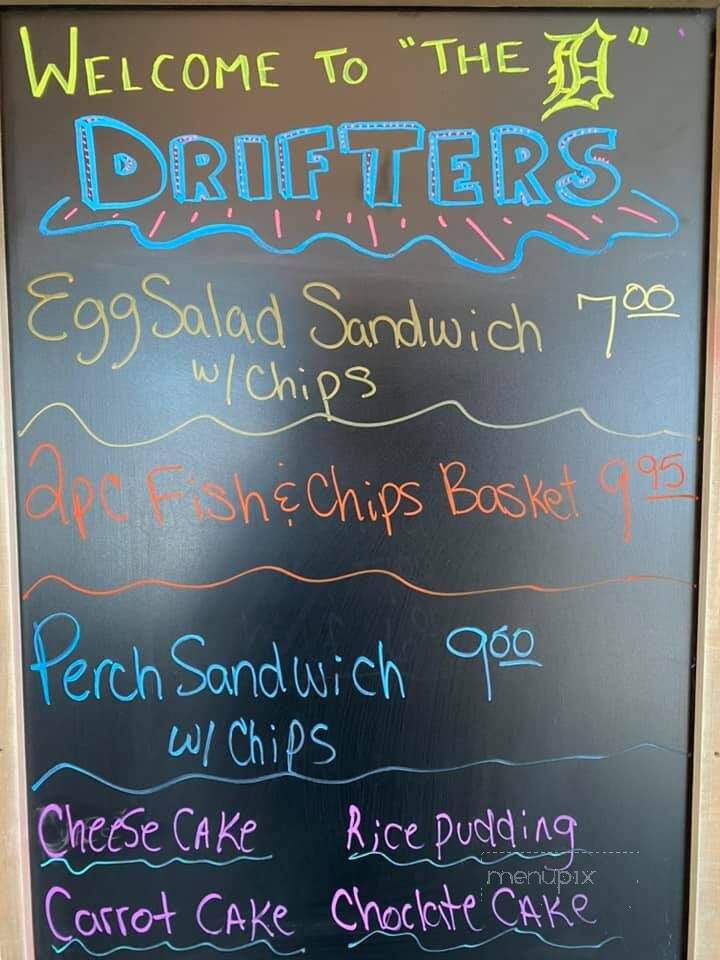 WELCOME TO "THE D"
DRIFTERS
Egg Salad Sandwich 7.00
w/ Chips
2pc Fish & Chips Basket 9.95
Perch Sandwich 9.00
w/ Chips
Cheese Cake Rice pudding
menupix
Carrot Cake Choclate Cake